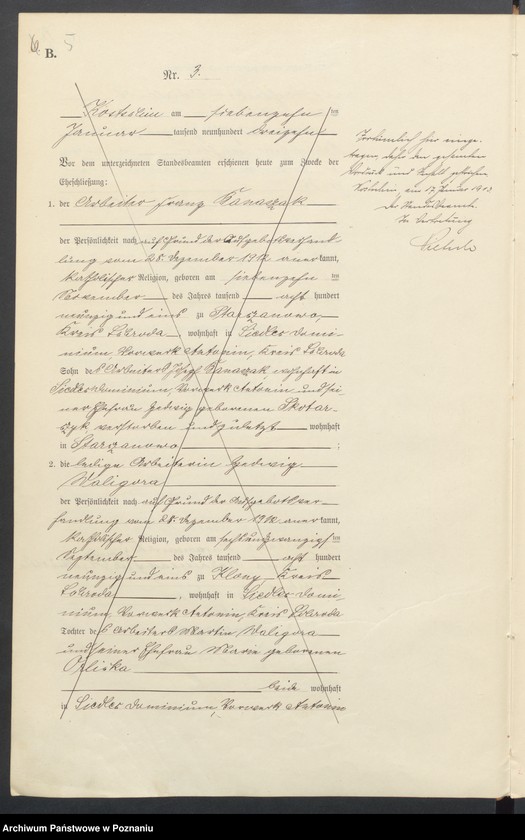 B. 5
Nr. 3.
Kostschin am siebenzehn ten
Januar tausend neunhundert dreizehn
Vor dem unterzeichneten Standesbeamten erschienen heute zum Zwecke der
Eheschließung:
1. der Arbeiter Franz Banaszak
der Persönlichkeit nach auf Grund der Aufgebotsverhand-
lung vom 28. Dezember 1912 anerkannt,
katholischer Religion, geboren am siebenzehn ten
November des Jahres tausend acht hundert
neunzig und eins zu Starzanowo,
Kreis Schroda, wohnhaft in Siedlec Domi-
nium, Vorwerk Antonin, Kreis Schroda
Sohn des Arbeiters Josef Banaszak wohnhaft in
Siedlec Dominium, Vorwerk Antonin und sei-
ner Ehefrau Hedwig geborenen Skotar-
czyk, verstorben und zuletzt wohnhaft
in Starzanowo ;
2. die ledige Arbeiterin Hedwig
Waligora
der Persönlichkeit nach auf Grund der Aufgebotsver-
handlung vom 28. Dezember 1912 anerkannt,
katholischer Religion, geboren am sechsundzwanzigsten
September des Jahres tausend acht hundert
neunzig und eins zu Klony, Kreis
Schroda, wohnhaft in Siedlec Domi-
nium, Vorwerk Antonin, Kreis Schroda
Tochter des Arbeiters Martin Waligora
und seiner Ehefrau Marie geborenen
Orliska
beide wohnhaft
in Siedlec Dominium, Vorwerk Antonin
Irrtümlich hier einge-
tragen, daher den gesamten
Vordruck und Schrift gestrichen
Kostschin, am 17. Januar 1913
Der Standesbeamte
In Vertretung
Archiwum Państwowe w Poznaniu
szukajwarchiwach.gov.pl